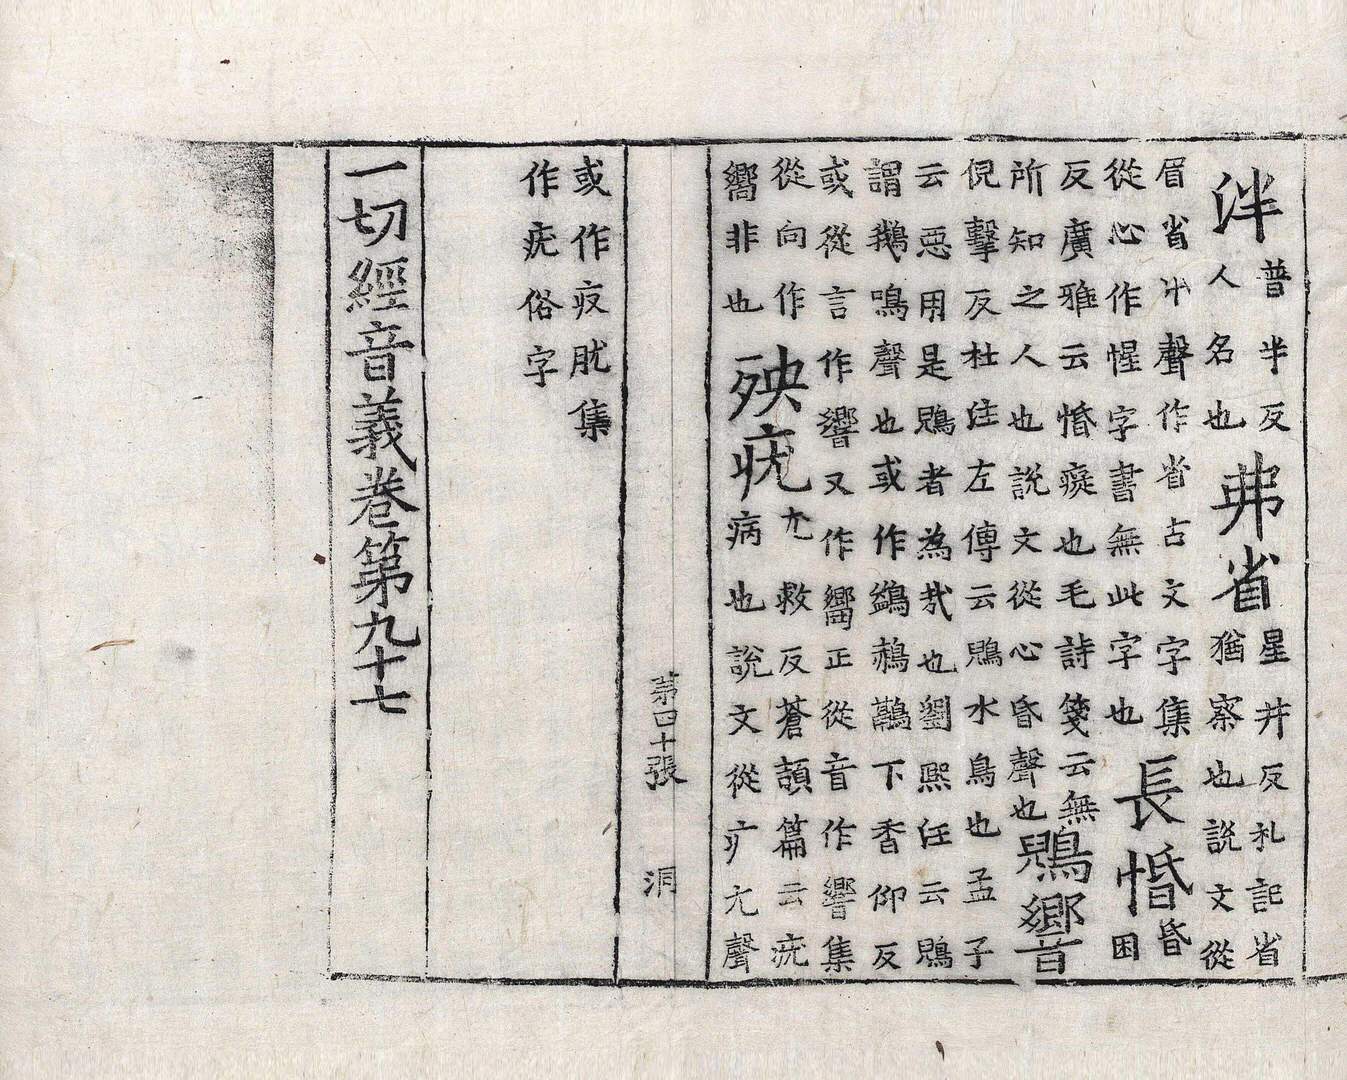 泮普半反
人名也
弗省星井反礼記省
猶察也說文從
眉省屮聲作省占文字集
從心作惺字書無此字也
長惛昏
困
反廣雅云惛癡也毛詩箋云無
所知之人也說文從心昏聲也
鶂響
倪擊反杜注左傳云鶂水鳥也孟子
云惡用是鶂者為哉也劉熙任云鶂
謂鵝鳴聲也或作鷁下香仰反
或從言作響又作嚮正從音作響集
從向作
嚮非也
殃疣尤救反蒼頡篇云疣
病也說文從疒尢聲
或作疻肬集
作疣俗字
第四十張 洞
一切經音義卷第九十七